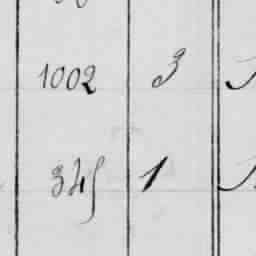 1002 3
345 1